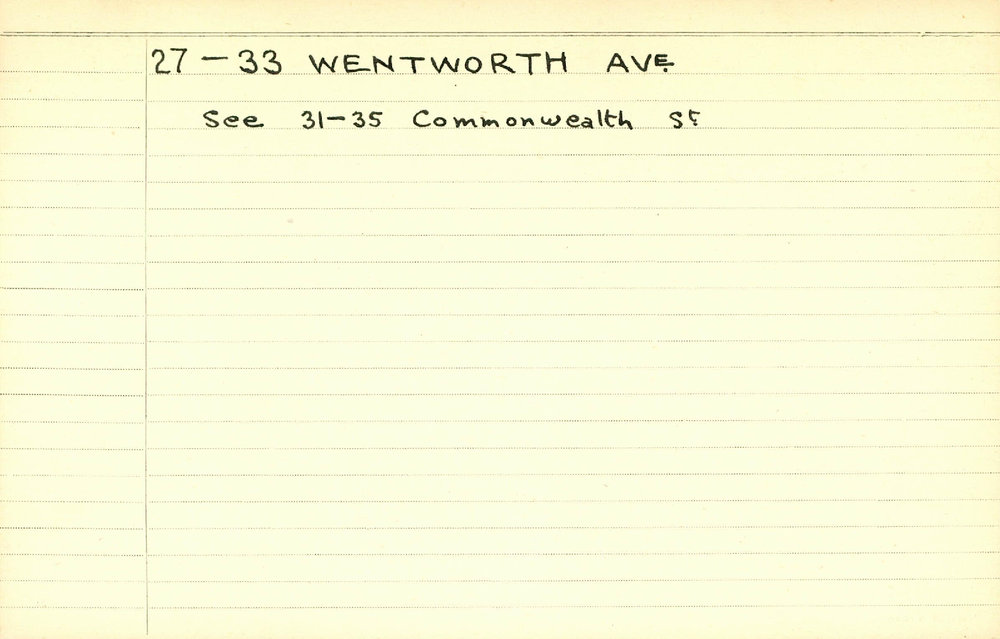 27 – 33 WENTWORTH AVE
See 31–35 Commonwealth St